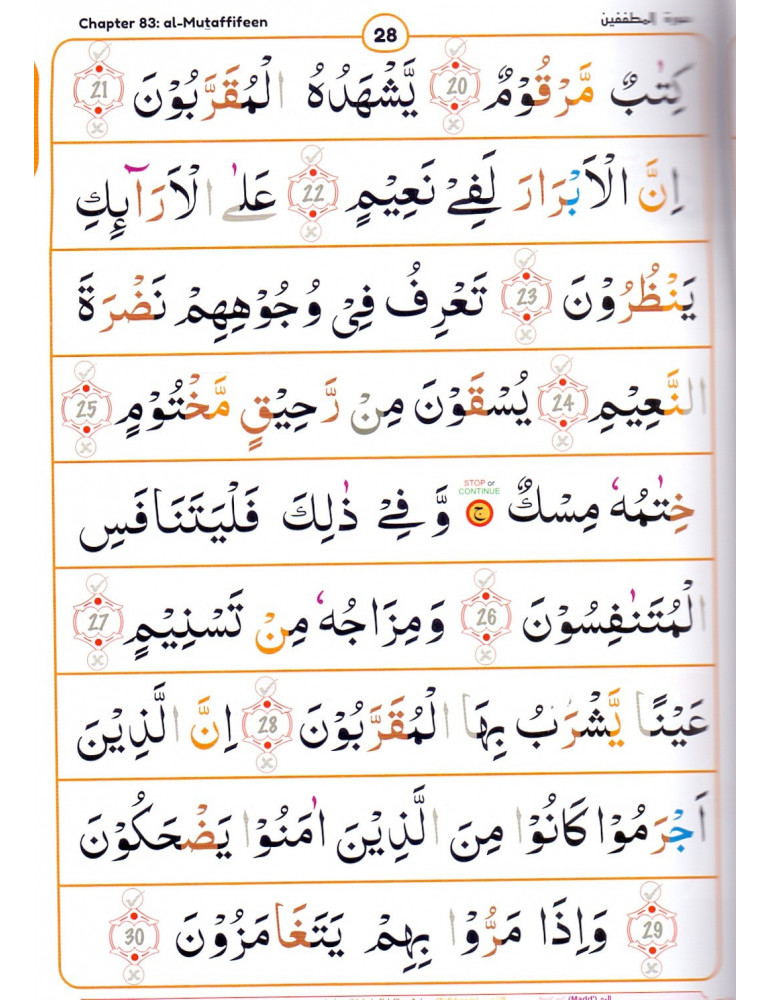 Chapter 83: al-Mutaffifeen
28
سورة المطففين
كِتٰبٌ مَّرْقُوْمٌ 20 يَّشْهَدُهُ الْمُقَرَّبُوْنَ 21
اِنَّ الْاَبْرَارَ لَفِيْ نَعِيْمٍ 22 عَلَى الْاَرَآئِكِ
يَنْظُرُوْنَ 23 تَعْرِفُ فِيْ وُجُوْهِهِمْ نَضْرَةَ
النَّعِيْمِ 24 يُسْقَوْنَ مِنْ رَّحِيْقٍ مَّخْتُوْمٍ 25
خِتٰمُهٗ مِسْكٌ ج STOP or CONTINUE وَّفِيْ ذٰلِكَ فَلْيَتَنَافَسِ
الْمُتَنٰفِسُوْنَ 26 وَمِزَاجُهٗ مِنْ تَسْنِيْمٍ 27
عَيْنًا يَّشْرَبُ بِهَا الْمُقَرَّبُوْنَ 28 اِنَّ الَّذِيْنَ
اَجْرَمُوْا كَانُوْا مِنَ الَّذِيْنَ اٰمَنُوْا يَضْحَكُوْنَ
29 وَاِذَا مَرُّوْا بِهِمْ يَتَغَامَزُوْنَ 30
(Madd)